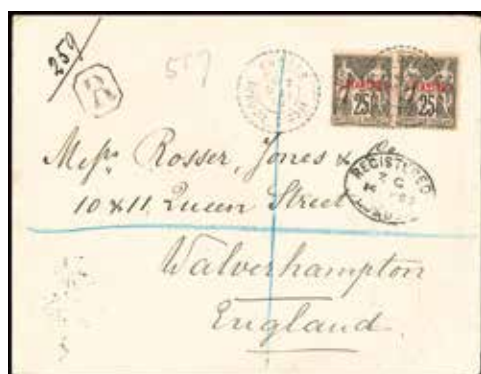 259
R
557
25 25
Messrs Rosser, Jones & Co
10 & 11 Queen Street
REGISTERED
Walverhampton
England